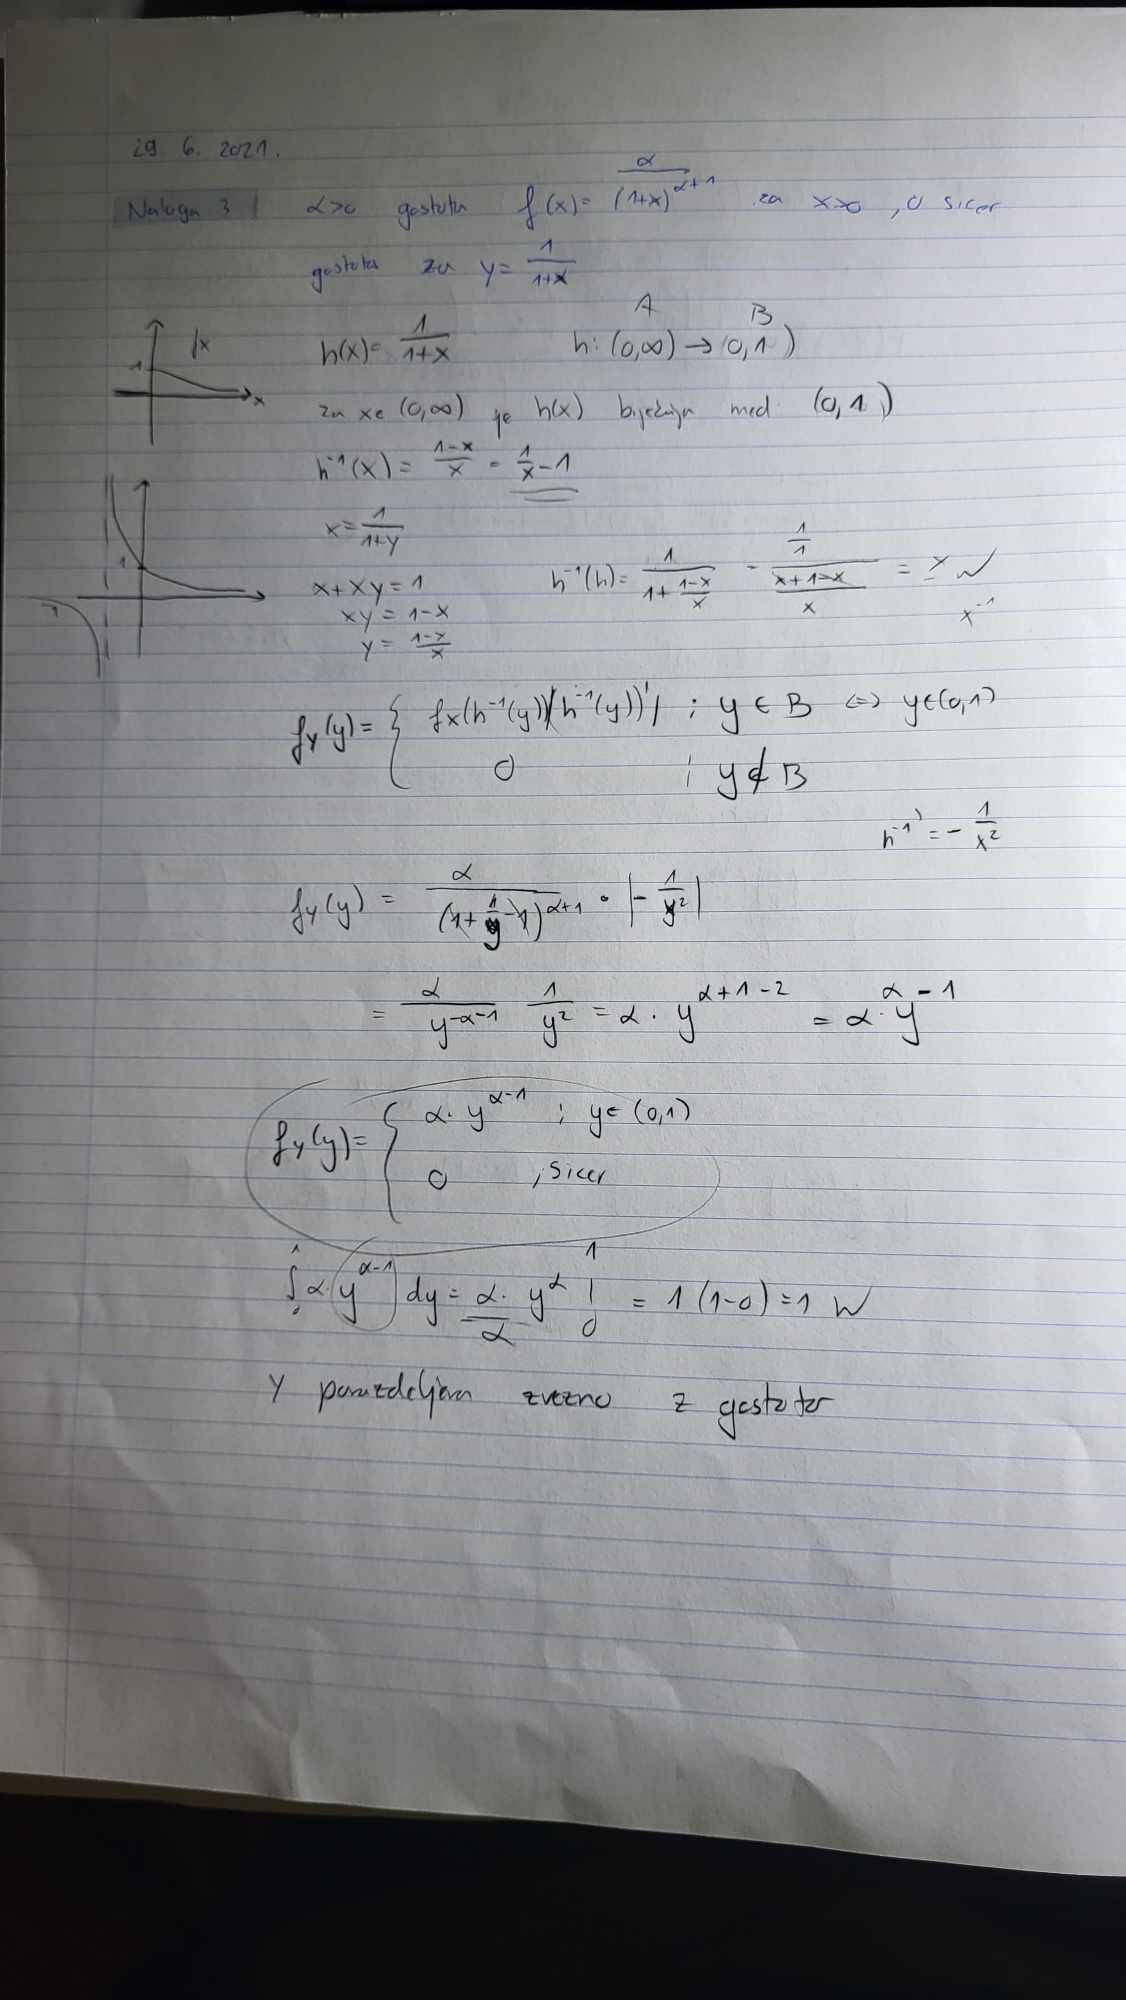 29. 6. 2021.
Naloga 3 α>0 gostota f(x)= α/(1+x)^(α+1) za x>0, 0 sicer
gostota za y= 1/(1+x)
A B
h(x)= 1/(1+x) h: (0,∞) → (0,1)
1 fx x
za x∈(0,∞) je h(x) bijekcija med (0,1)
h⁻¹(x) = (1-x)/x = 1/x - 1
x = 1/(1+y)
x+xy=1 h⁻¹(h)= 1/(1+(1-x)/x) = (1/1)/((x+1-x)/x) = x
xy = 1-x x⁻¹
y = (1-x)/x
1 -1
f_Y(y)= { f_X(h⁻¹(y))|(h⁻¹(y))'| ; y∈B ⇔ y∈(0,1)
0 ; y∉B
h⁻¹' = - 1/x²
f_Y(y) = α/(1+1/y-1)^(α+1) · |-1/y²|
= α/y^(-α-1) 1/y² = α · y^(α+1-2) = α · y^(α-1)
f_Y(y)= { α · y^(α-1) ; y∈(0,1)
0 ; sicer
∫₀¹ α · y^(α-1) dy = α/α · y^α |₀¹ = 1(1-0)=1
Y porazdeljena zvezno z gostoto